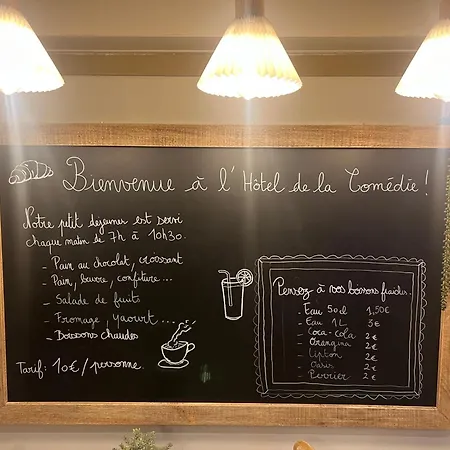 Bienvenue à l'Hôtel de la Comédie !
Notre petit déjeuner est servi
chaque matin de 7h à 10h30.
- Pain au chocolat, croissant
- Pain, beurre, confiture...
- Salade de fruits
- Fromage, yaourt...
- Boissons chaudes
Tarif : 10€/personne.
Pensez à vos boissons fraîches.
- Eau 50cl 1,50€
- Eau 1L 5€
- Coca-Cola 2€
- Orangina 2€
- Lipton 2€
- Oasis 2€
- Perrier 2€